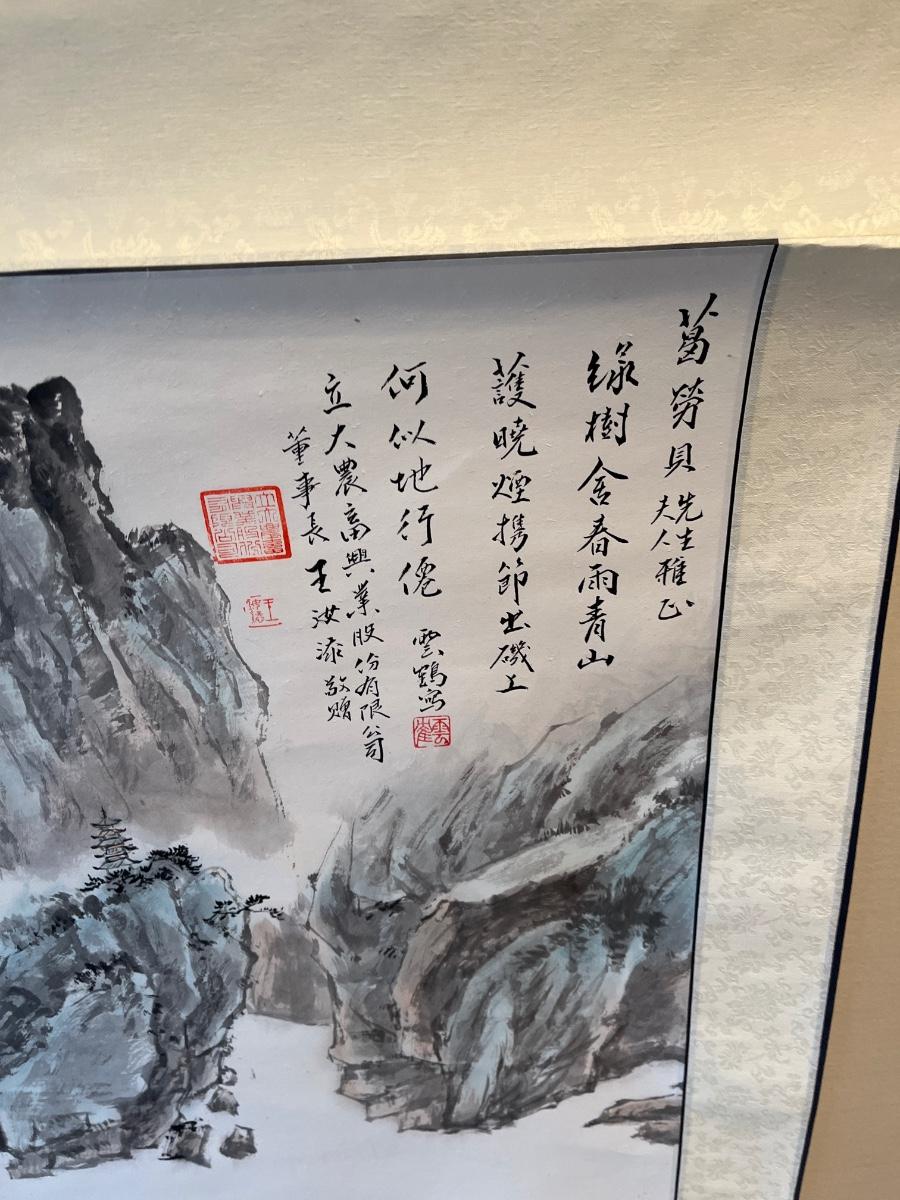 葛勞貝先生夫人雅正
綠樹含春雨青山
護曉煙携節出磯上
何似地行僊 雲鶴寫
立大農畜興業股份有限公司
董事長王汝添敬贈